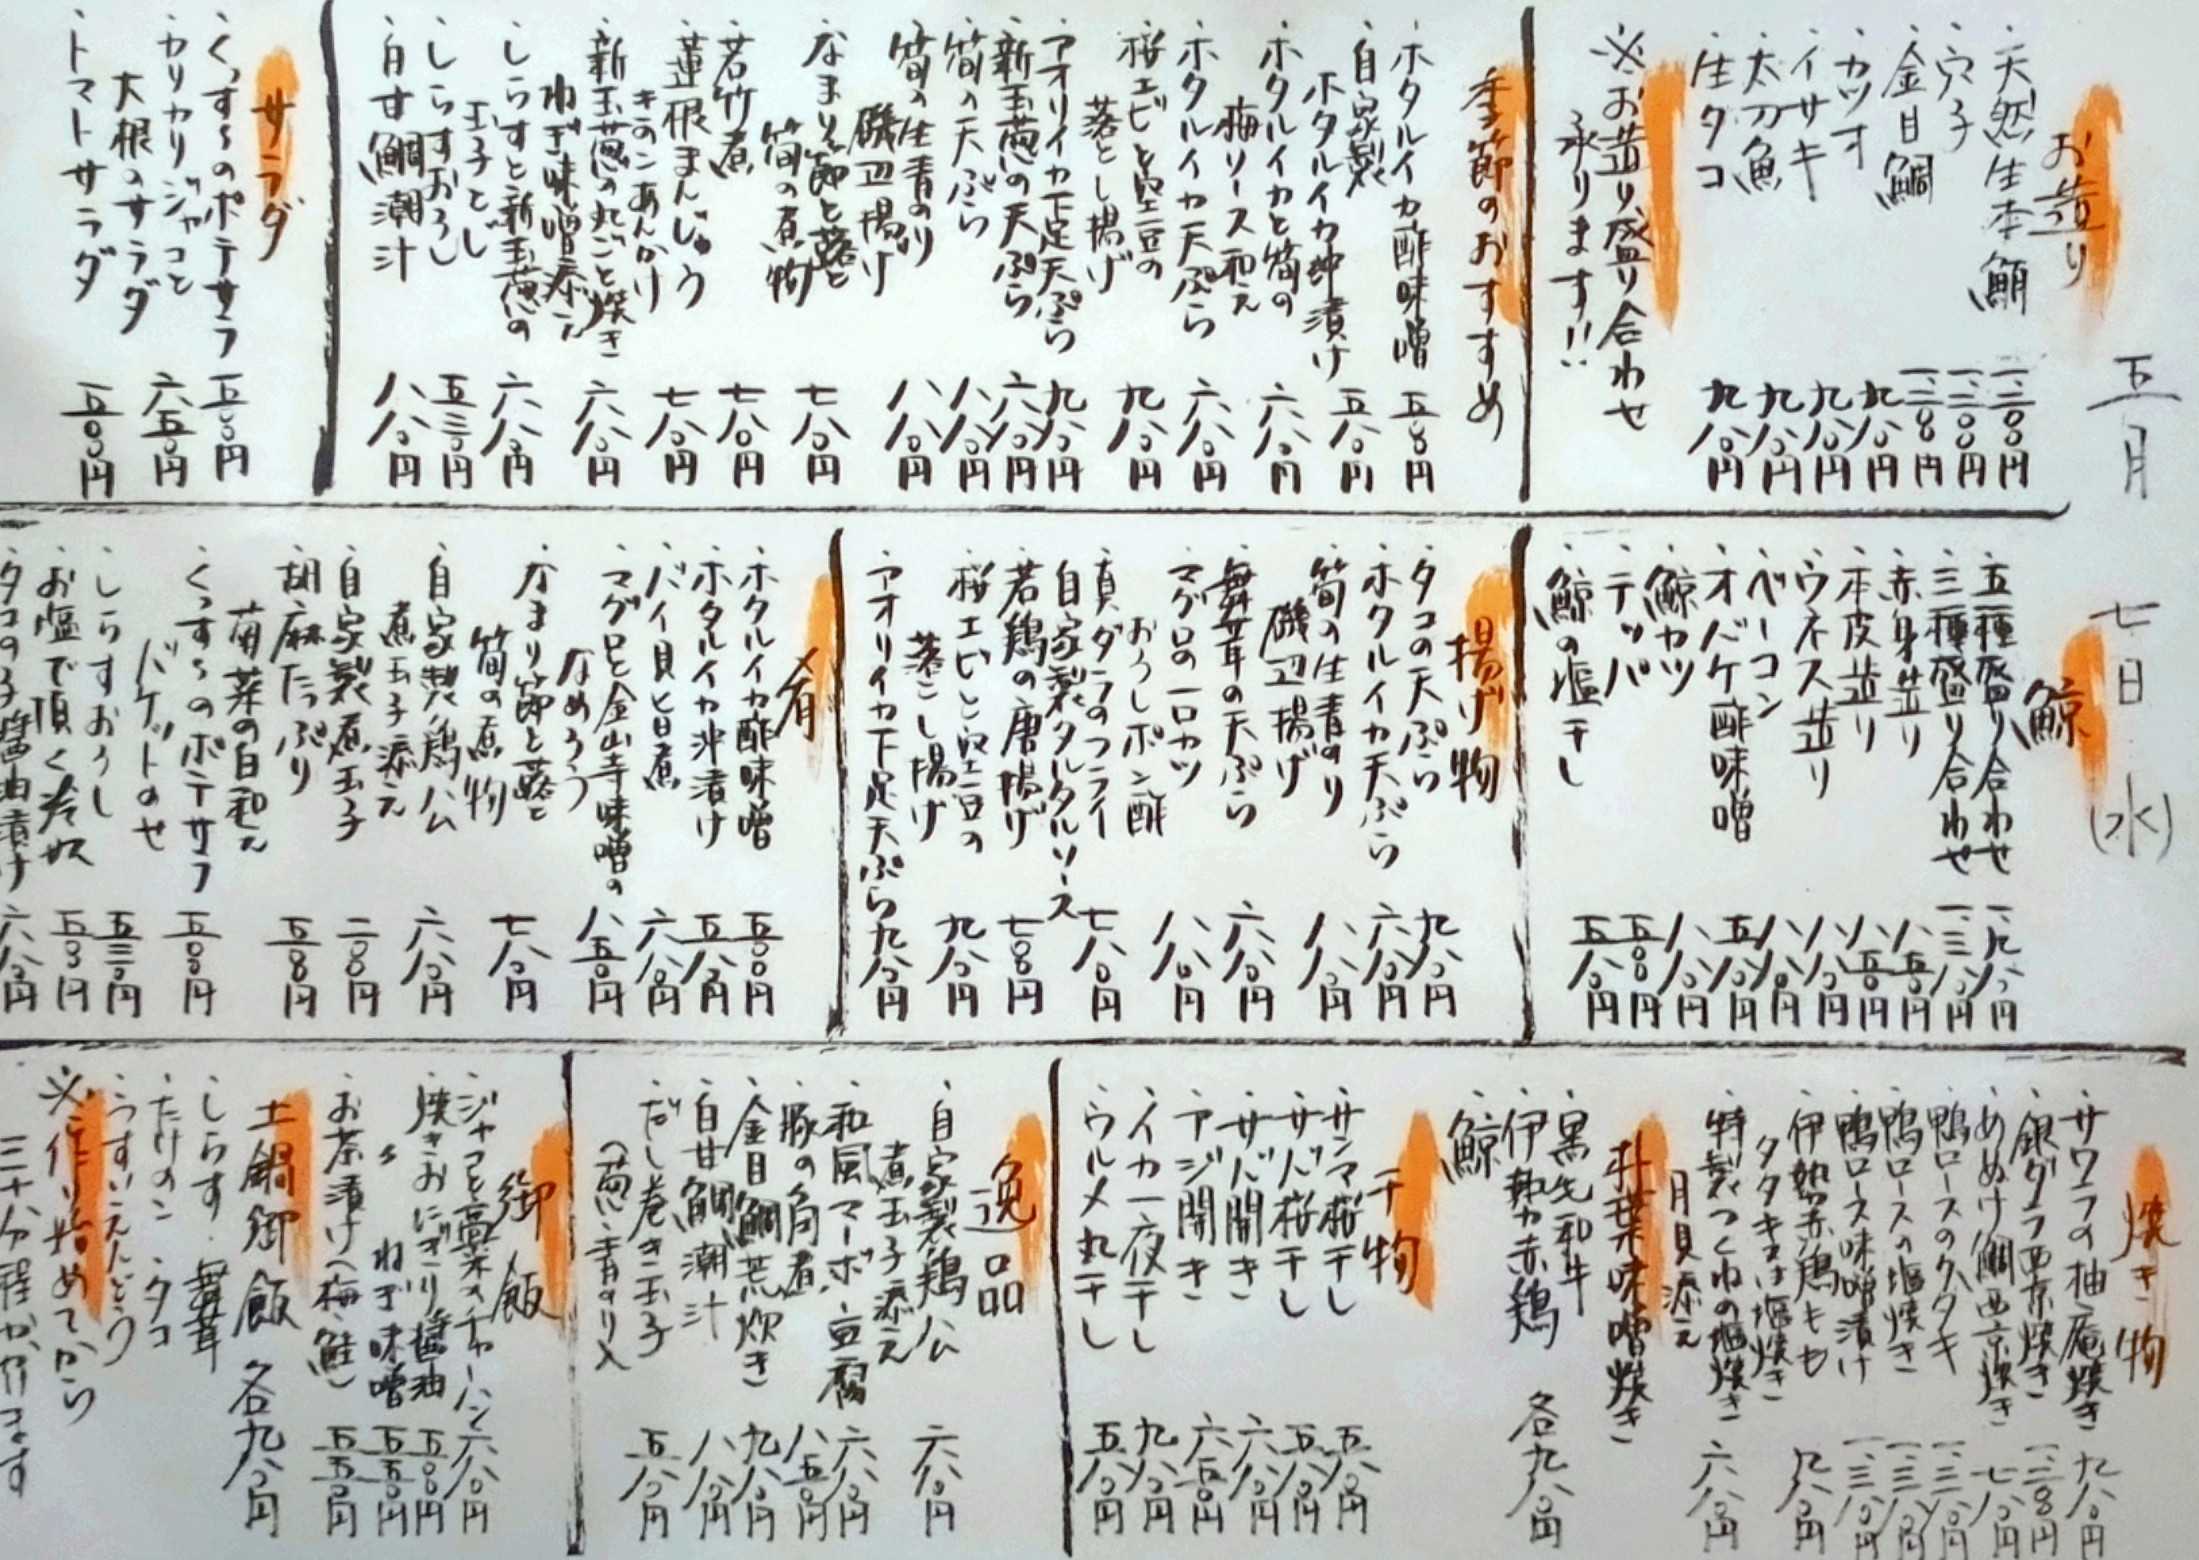 五月
七日
(水)
お造り
・天然生本鮪
一二〇〇円
・穴子
一二〇〇円
・金目鯛
一二〇〇円
・カツオ
九八〇円
・イサキ
九八〇円
・太刀魚
九八〇円
・生タコ
九八〇円
※お造り盛り合わせ
承ります!!
季節のおすすめ
・ホタルイカ酢味噌
五〇〇円
・自家製
ホタルイカ沖漬け
五八〇円
・ホタルイカと筍の
梅ソース和え
六八〇円
・ホタルイカ天ぷら
六八〇円
・桜エビと空豆の
落とし揚げ
九八〇円
・アオリイカ下足天ぷら
九八〇円
・新玉葱の天ぷら
六八〇円
・筍の天ぷら
八八〇円
・筍の生青のり
磯辺揚げ
八八〇円
・なまり節と蕗と
筍の煮物
七八〇円
・若竹煮
七八〇円
・蓮根まんじゅう
きのこあんかけ
七八〇円
・新玉葱の丸ごと焼き
ねぎ味噌添え
六八〇円
・しらすと新玉葱の
玉子とじ
六八〇円
・しらすおろし
五三〇円
・白甘鯛潮汁
八八〇円
サラダ
・くっすんのポテサラ
五〇〇円
・カリカリジャコと
大根のサラダ
六五〇円
・トマトサラダ
五〇〇円
鯨
・五種盛り合わせ
一、九八〇円
・三種盛り合わせ
一、三八〇円
・赤身造り
八五〇円
・本皮造り
八五〇円
・ウネス造り
八八〇円
・ベーコン
八八〇円
・オバケ酢味噌
五八〇円
・鯨カツ
八八〇円
・テッパ
五〇〇円
・鯨の塩干し
五八〇円
揚げ物
・タコの天ぷら
九八〇円
・ホタルイカ天ぷら
六八〇円
・筍の生青のり
磯辺揚げ
八八〇円
・舞茸の天ぷら
六八〇円
・マグロの一口カツ
おろしポン酢
八八〇円
・真ダラのフライ
自家製タルタルソース
七八〇円
・若鶏の唐揚げ
七〇〇円
・桜エビと空豆の
落とし揚げ
九八〇円
・アオリイカ下足天ぷら
九八〇円
肴
・ホタルイカ酢味噌
五〇〇円
・ホタルイカ沖漬け
五八〇円
・バイ貝と旨煮
六八〇円
・マグロと金山寺味噌の
なめろう
八五〇円
・なまり節と蕗と
筍の煮物
七八〇円
・自家製鶏ハム
煮玉子添え
六八〇円
・自家製煮玉子
二〇〇円
・胡麻たっぷり
菊菜の白和え
五〇〇円
・くっすんのポテサラ
バケットのせ
五〇〇円
・しらすおろし
五三〇円
・お塩で頂く冷奴
五〇〇円
・タコの子醤油漬け
六八〇円
焼き物
・サワラの柚庵焼き
九八〇円
・銀ダラ西京焼き
・めぬけ鯛西京焼き
・鴨ロースのタタキ
一、三八〇円
・鴨ロースの塩焼き
一、三八〇円
・鴨ロース味噌漬け
一、三八〇円
・伊勢赤鶏もも
タタキ又は塩焼き
九八〇円
・特製つくねの塩焼き
月見添え
六八〇円
朴葉味噌焼き
・黒毛和牛
・伊勢赤鶏
・鯨
各九八〇円
干物
・サンマ桜干し
五八〇円
・サバ桜干し
五八〇円
・サバ開き
六八〇円
・アジ開き
六五〇円
・イカ一夜干し
九八〇円
・ウルメ丸干し
五八〇円
逸品
・自家製鶏ハム
煮玉子添え
六八〇円
・和風マーボ豆腐
六八〇円
・豚の角煮
八五〇円
・金目鯛荒炊き
九八〇円
・白甘鯛潮汁
八八〇円
・だし巻き玉子
(葱・青のり入)
五八〇円
御飯
・ジャコと高菜のチャーハン
六八〇円
・焼きおにぎり醤油
五〇〇円
〃 ねぎ味噌
五五〇円
・お茶漬け(梅・鮭)
五五〇円
土鍋御飯 各九八〇円
・しらす・舞茸
・たけのこ・タコ
・うすいえんどう
※作り始めてから
三十分程かかります